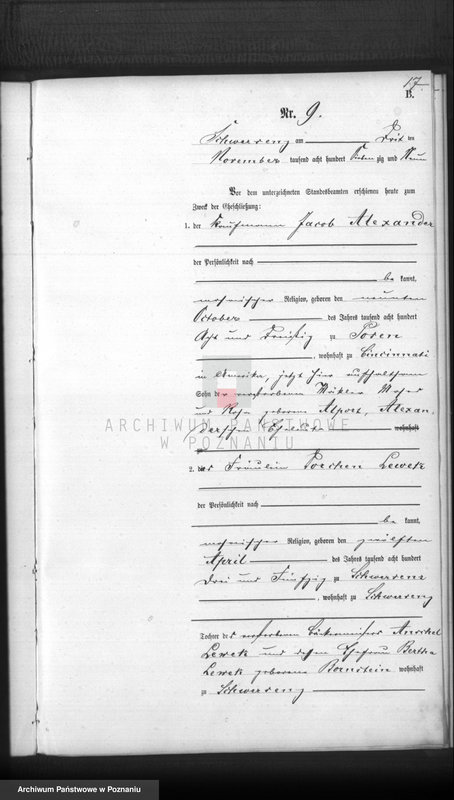 17
B.
Nr. 9.
Schwersenz am Drit ten
November tausend acht hundert sieben zig und Neun
Vor dem unterzeichneten Standesbeamten erschienen heute zum
Zweck der Eheschließung:
1. der Kaufmann Jacob Alexander
der Persönlichkeit nach
be kannt,
mosaischer Religion, geboren den neunten
October des Jahres tausend acht hundert
Acht und Dreißig zu Posen
, wohnhaft zu Cincinnati
in Amerika, jetzt hier aufhaltsam
Sohn der verstorbenen Mäkler Moses
und Rosa geborene Alport, Alexan,
derschen Eheleute wohnhaft
zu
ARCHIWUM PAŃSTWOWE
W POZNANIU
2. die Fräulein Poeschen Lewek
der Persönlichkeit nach
be kannt,
mosaischer Religion, geboren den zwölften
April des Jahres tausend acht hundert
drei und Fünfzig zu Schwersenz
, wohnhaft zu Schwersenz
Tochter des verstorbenen Bäckermeisters Anschel
Lewek und dessen Ehefrau Bertha
Lewek geborene Bornstein wohnhaft
zu Schwersenz
Archiwum Państwowe w Poznaniu
Archiwum Państwowe w Poznaniu